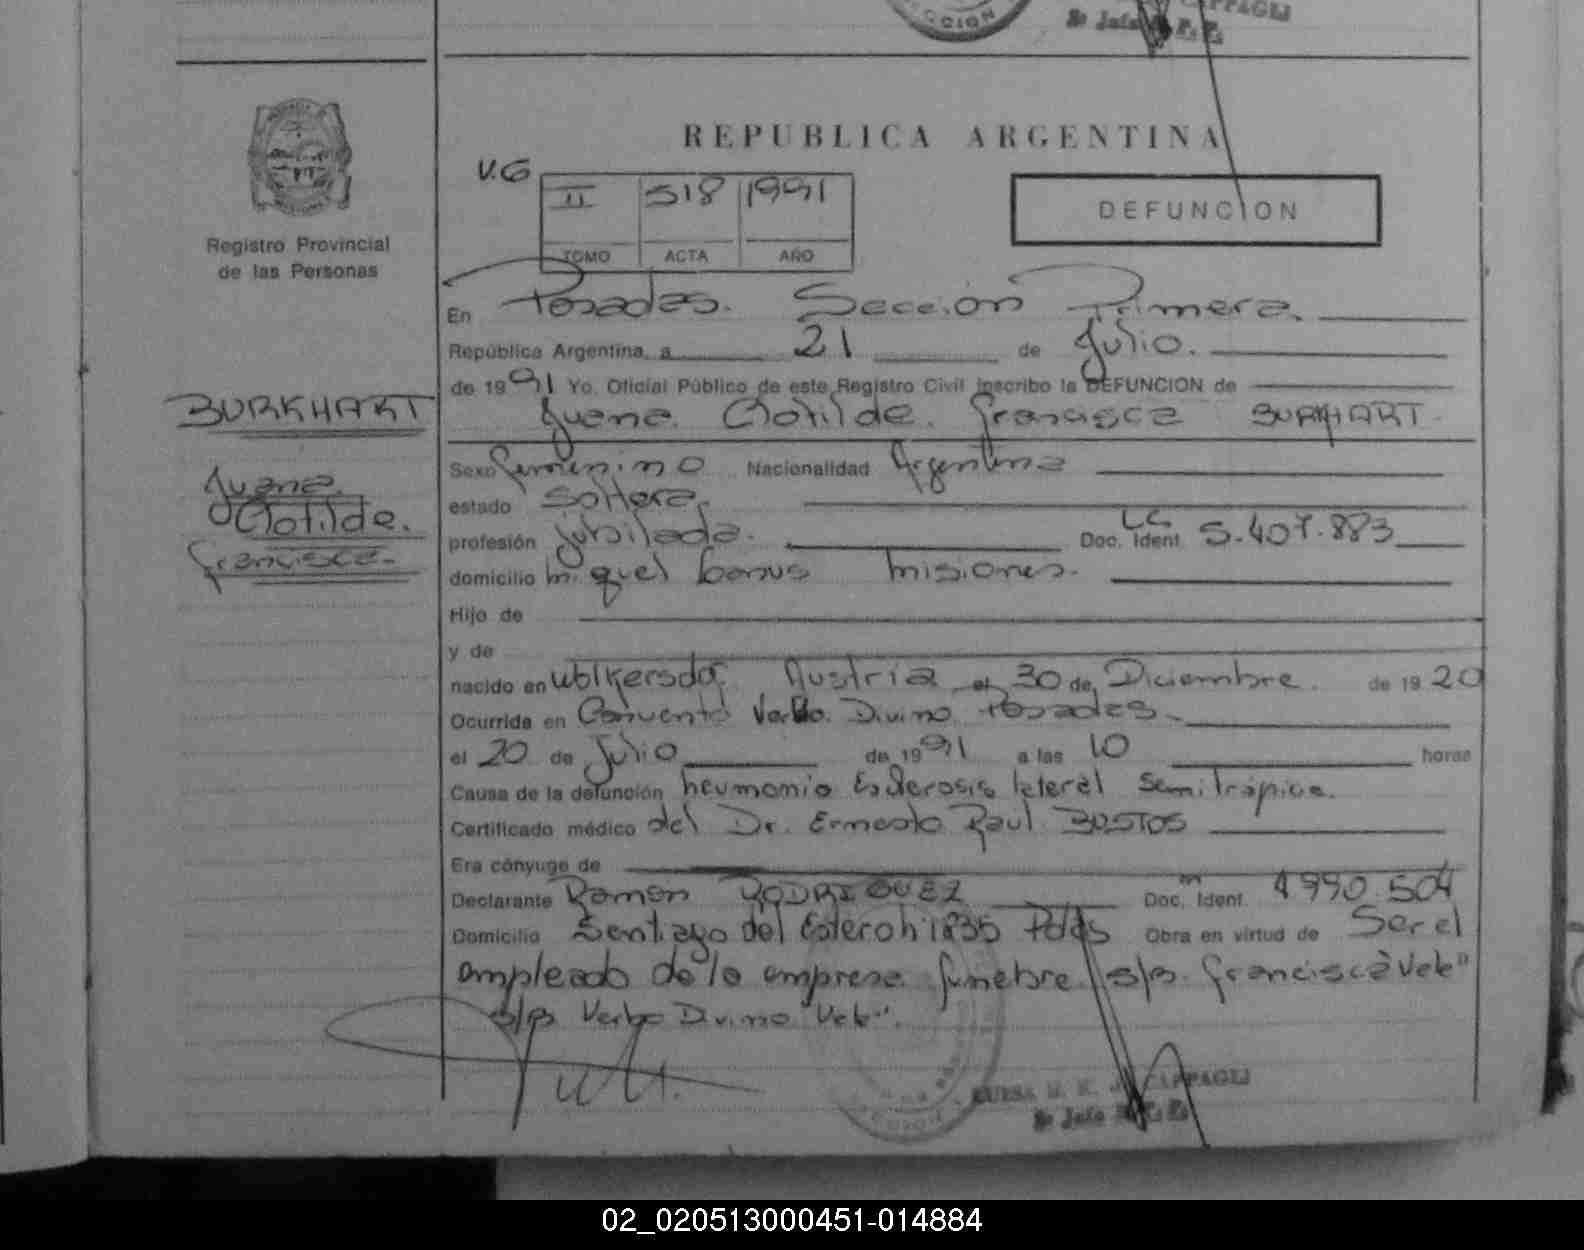 CCION
CAPPAGLI
REPUBLICA ARGENTINA
V.G
II 518 1991
TOMO ACTA AÑO
DEFUNCION
Registro Provincial
de las Personas
En Posadas. Sección Primera.
República Argentina, a 21 de Julio.
de 1991 Yo, Oficial Público de este Registro Civil inscribo la DEFUNCION de
BURKHART
Juana
Clotilde.
Francisca.
Juana Clotilde. Francisca BURKHART.
Sexo femenino Nacionalidad Argentina
estado soltera.
profesión jubilada. Doc. Ident. LC 5.407.883
domicilio Miguel Lanus Misiones.
Hijo de
y de
nacido en Wolkersdor Austria el 30 de Diciembre. de 1920
Ocurrida en Convento Verbo Divino Posadas.
el 20 de Julio de 1991 a las 10 horas
Causa de la defunción neumonia Esclerosis lateral Semitrópica.
Certificado médico del Dr. Ernesto Raul BUSTOS
Era cónyuge de
Declarante Ramon RODRIGUEZ Doc. Ident. m 4990.504
Domicilio Santiago del Estero nº 1835 Pdas Obra en virtud de Ser el
empleado de la empresa funebre s/p. Francisca "Vele"
s/p Verbo Divino "Vele".
CAPPAGLI
02_020513000451-014884